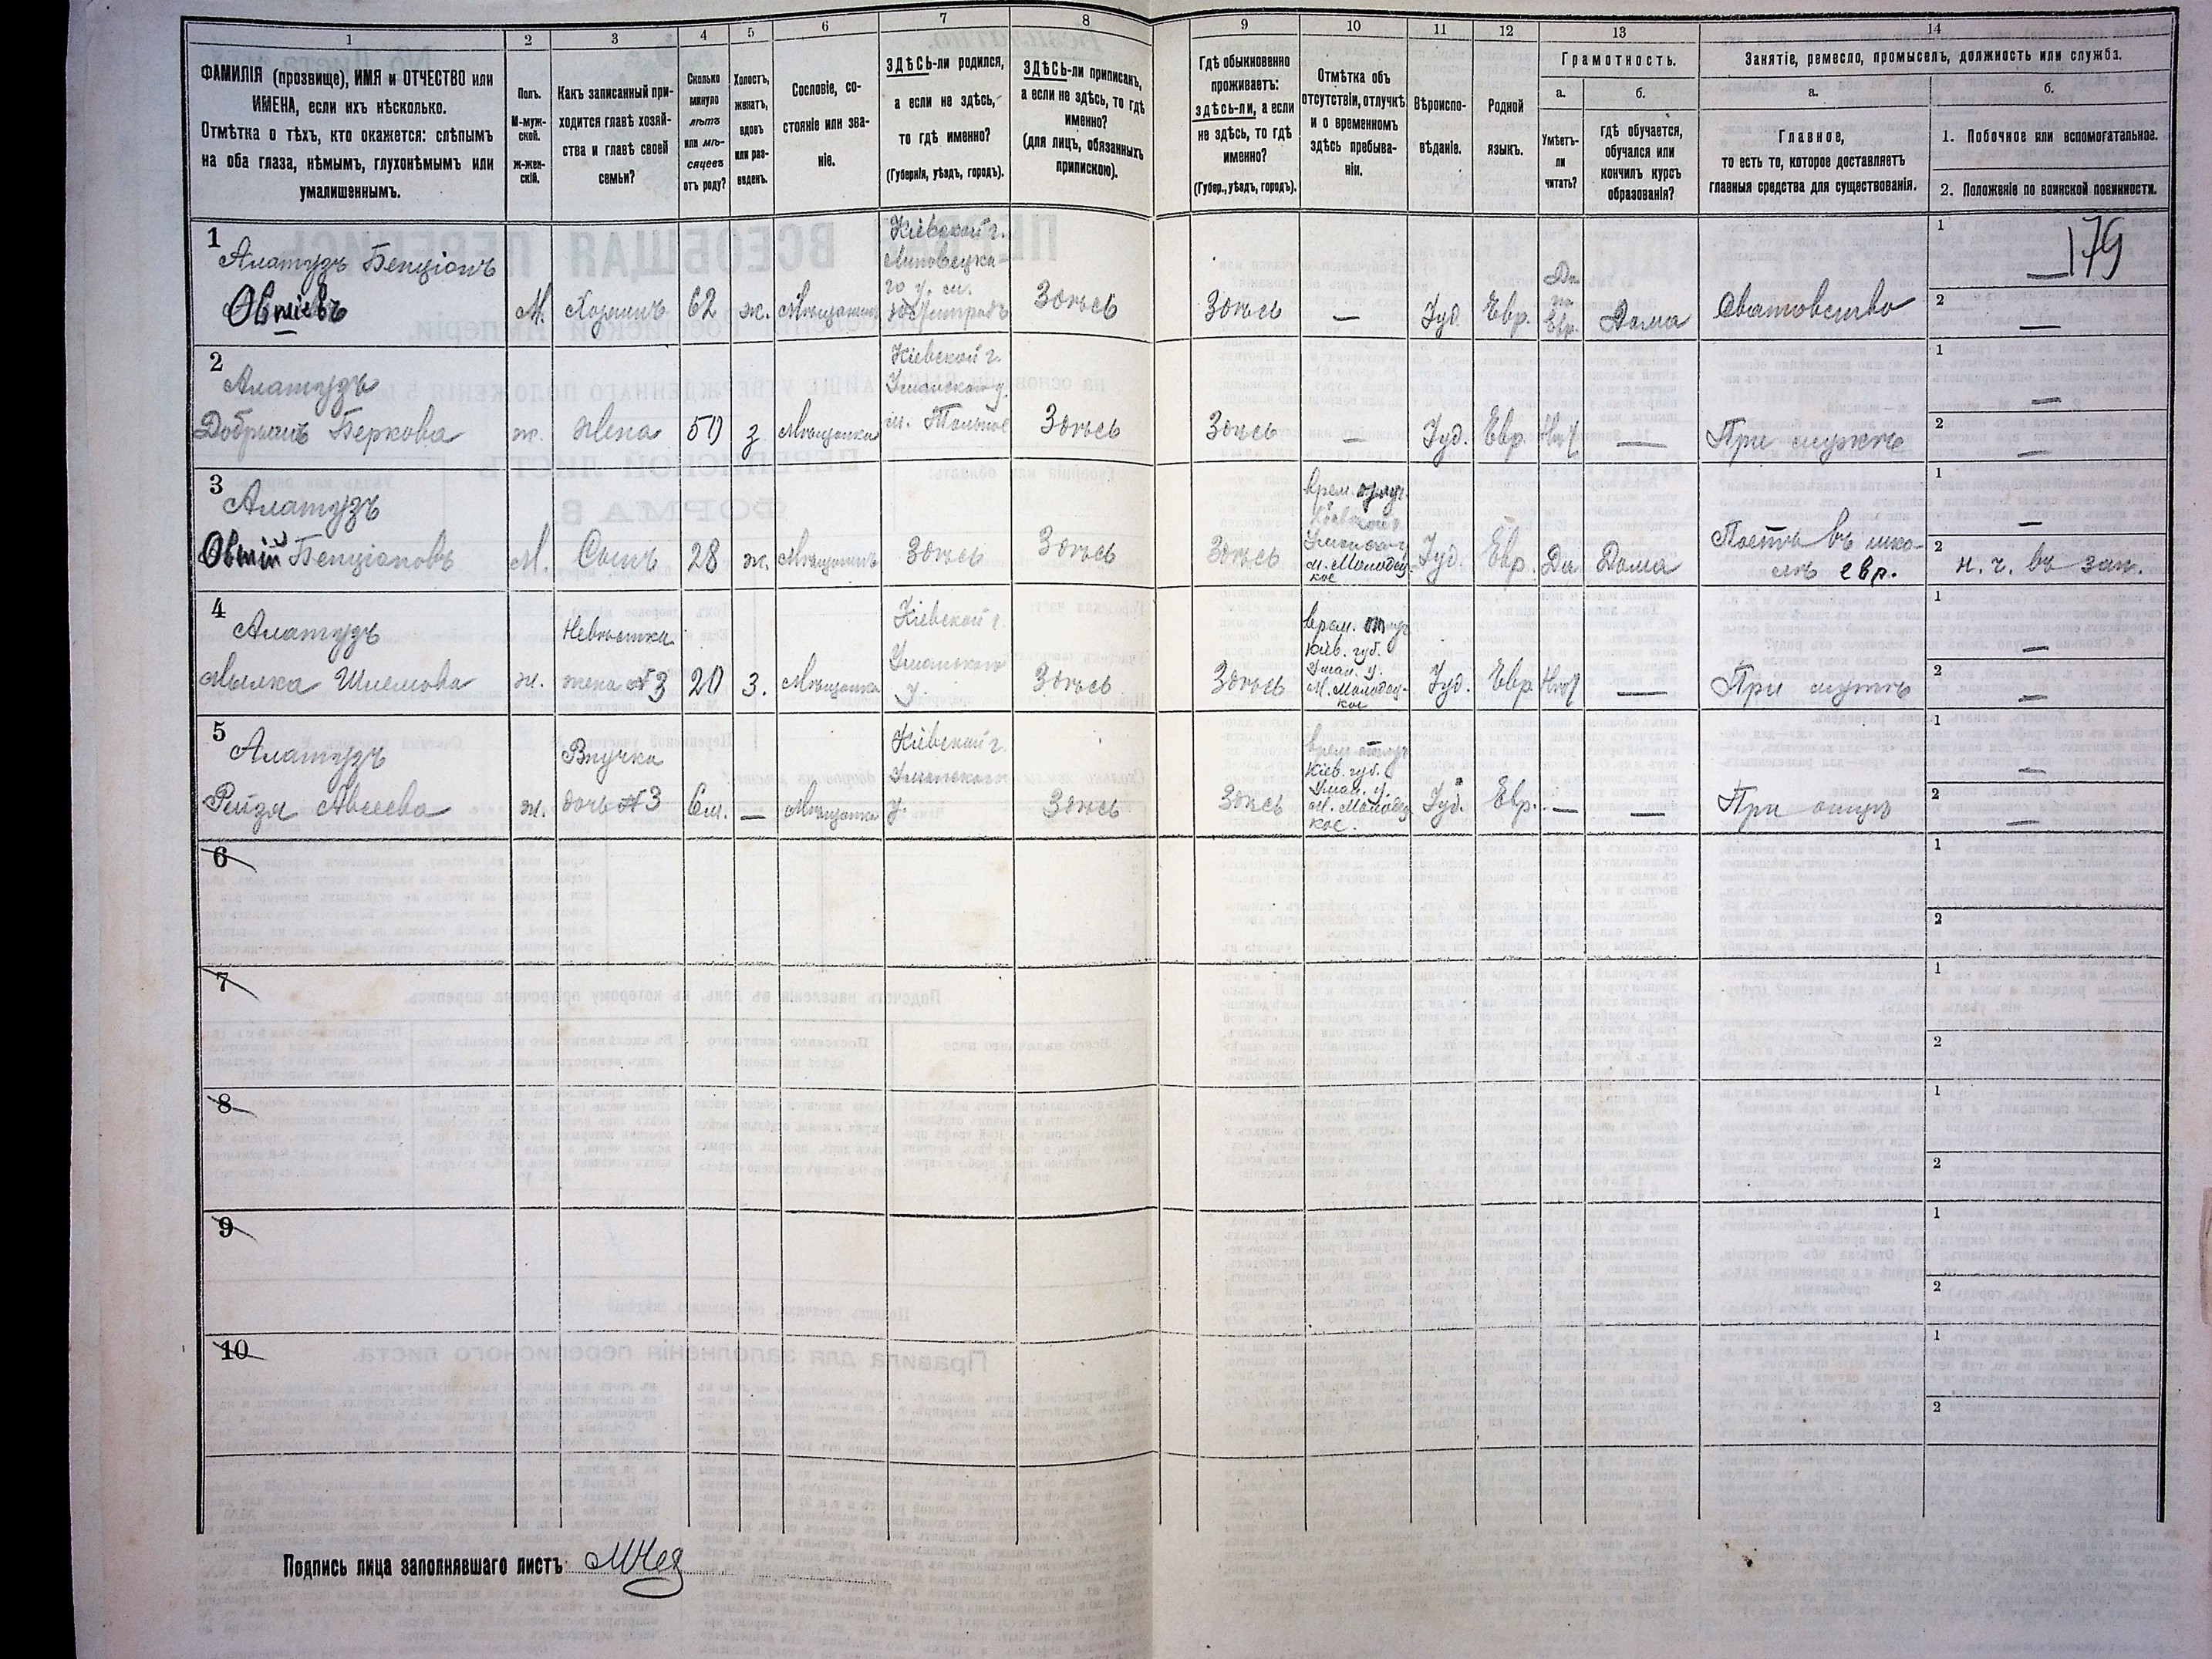 1
2
3
4
5
6
7
8
9
10
11
12
13
14
ФАМИЛІЯ (прозвище), ИМЯ и ОТЧЕСТВО или
ИМЕНА, если ихъ нѣсколько.
Отмѣтка о тѣхъ, кто окажется: слѣпымъ
на оба глаза, нѣмымъ, глухонѣмымъ или
умалишеннымъ.
Полъ.
М-муж-
ской.
ж-жен-
скій.
Какъ записанный при-
ходится главѣ хозяй-
ства и главѣ своей
семьи?
Сколько
минуло
лѣтъ
или мѣ-
сяцевъ
отъ роду?
Холостъ,
женатъ,
вдовъ
или раз-
веденъ.
Сословіе, со-
стояніе или зва-
ніе.
ЗДѢСЬ-ли родился,
а если не здѣсь,
то гдѣ именно?
(Губернія, уѣздъ, городъ).
ЗДѢСЬ-ли приписанъ,
а если не здѣсь, то гдѣ
именно?
(для лицъ, обязанныхъ
припискою).
Гдѣ обыкновенно
проживаетъ:
здѣсь-ли, а если
не здѣсь, то гдѣ
именно?
(Губер., уѣздъ, городъ).
Отмѣтка объ
отсутствіи, отлучкѣ
и о временномъ
здѣсь пребыва-
ніи.
Вѣроиспо-
вѣданіе.
Родной
языкъ.
Грамотность.
а.
Умѣетъ-
ли
читать?
б.
гдѣ обучается,
обучался или
кончилъ курсъ
образованія?
Занятіе, ремесло, промыселъ, должность или служба.
а.
Главное,
то есть то, которое доставляетъ
главныя средства для существованія.
б.
1. Побочное или вспомогательное.
2. Положеніе по воинской повинности.
1
Алатузъ Бенціонъ
Овшіевъ
М.
Хозяинъ
62
ж.
Мѣщанинъ
Кіевской г.
Липовецка
го у. м.
Здѣсь
Здѣсь
—
Іуд.
Евр.
Да
по
Евр.
Дома
Сватовство
1
179
2
—
2
Алатузъ
Добрышъ Беркова
ж.
Жена
50
з
Мѣщанка
Кіевской г.
Уманскаго у.
м. Тальное
Здѣсь
Здѣсь
—
Іуд.
Евр.
Нѣт
—
При мужѣ
1
—
2
—
3
Алатузъ
Овшій Бенціоновъ
М.
Сынъ
28
ж.
Мѣщанинъ
Здѣсь
Здѣсь
Здѣсь
врем. отлуч.
Кіевской г.
Уманског
м. Молодец
кое
Іуд.
Евр.
Да
Дома
Поетъ въ шко-
лѣ евр.
1
—
2
н. ч. въ зап.
4
Алатузъ
Мылка Шлемова
ж.
Невѣстка
жена №3
20
З.
Мѣщанка
Кіевской г.
Уманскаго
у.
Здѣсь
Здѣсь
врем. отлуч
Кіев. губ.
Уман. у.
М. Молодец-
кое
Іуд.
Евр.
Нѣт
—
При мужѣ
1
—
2
—
5
Алатузъ
Рейзя Авсеева
ж.
Внучка
дочь №3
6м.
—
Мѣщанка
Кіевской г.
Уманскаго
у.
Здѣсь
Здѣсь
врем. отлуч
Кіев. губ.
Уман. у.
м. Молодец
кое.
Іуд.
Евр.
—
—
При отцѣ
1
—
2
—
6
1
2
7
1
2
8
1
2
9
1
2
10
1
2
Подпись лица заполнявшаго листъ